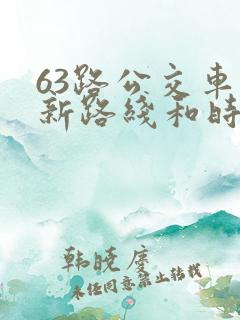 63路公交车
新路线和时
韩晓度
未经同意禁止转载